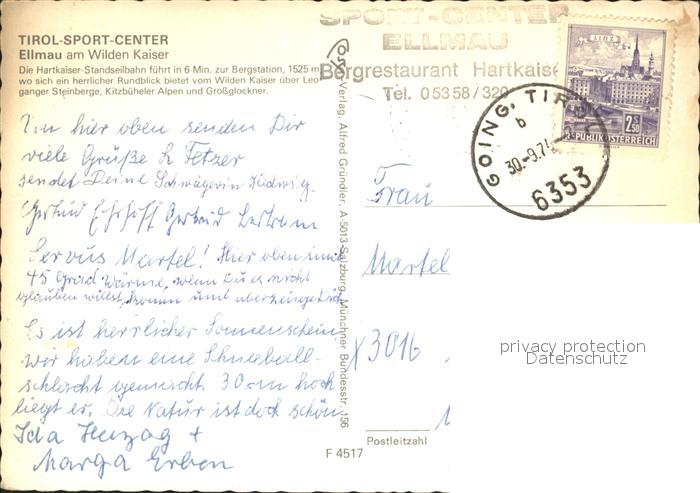 TIROL-SPORT-CENTER
Ellmau am Wilden Kaiser
Die Hartkaiser-Standseilbahn führt in 6 Min. zur Bergstation, 1525 m
wo sich ein herrlicher Rundblick bietet vom Wilden Kaiser über Leo
ganger Steinberge, Kitzbüheler Alpen und Großglockner.
Von hier oben senden Dir
viele Grüße L Fetzer
sendet Deine Schwägerin Hedwig.
Gertrud Gertrud Bertram
Servus Martel! Hier oben sind
45 Grad Wärme, wenn Du es nicht
glauben willst, komm und überzeuge Dich
Es ist herrlicher Sonnenschein
wir haben eine Schneeball-
schlacht gemacht. 30 cm hoch
liegt er. Die Natur ist doch schön
Ida Herzog +
Marga Erben
Verlag. Alfred Gründler, A-5013 Salzburg, Münchner Bundesstr. 156
F 4517
SPORT-CENTER
ELLMAU
Bergrestaurant Hartkaise
Tel. 05358/320
LINZ
2.50
REPUBLIK ÖSTERREICH
GOING, TIROL
b
30.-9.74
6353
Frau
Martel
X 3016
Postleitzahl
privacy protection
Datenschutz